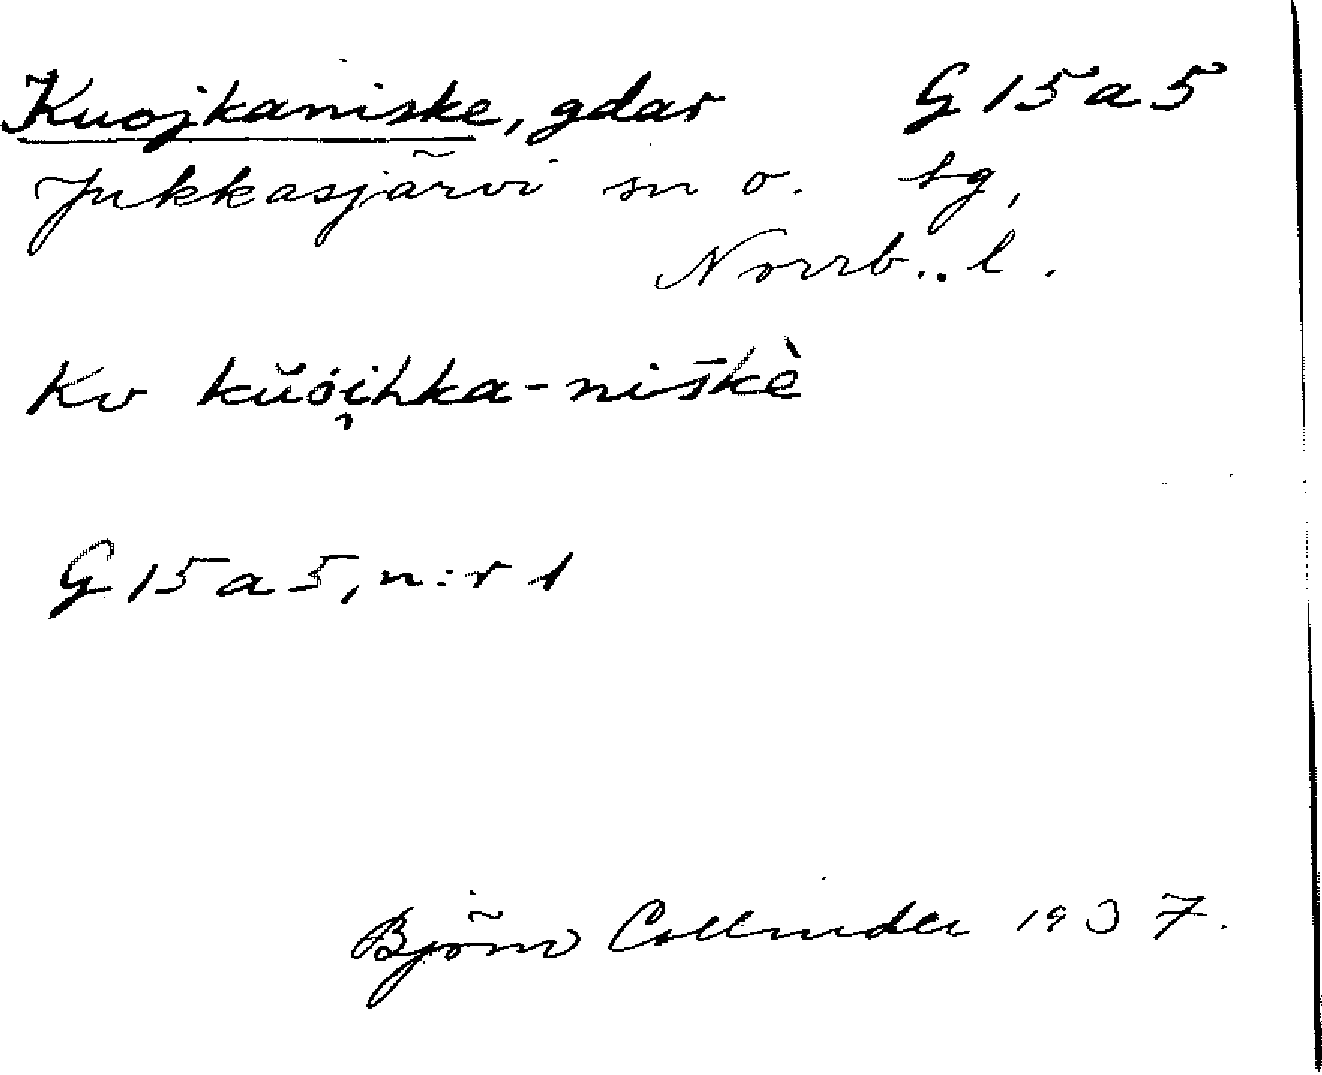 Kuojkaniske, gdar G 15 a 5
Jukkasjärvi sn o. tg,
Norrb.. l.
Kv kŭói̯hka-niškè
G 15 a 5, n:r 1
Björn Collinder 1937.